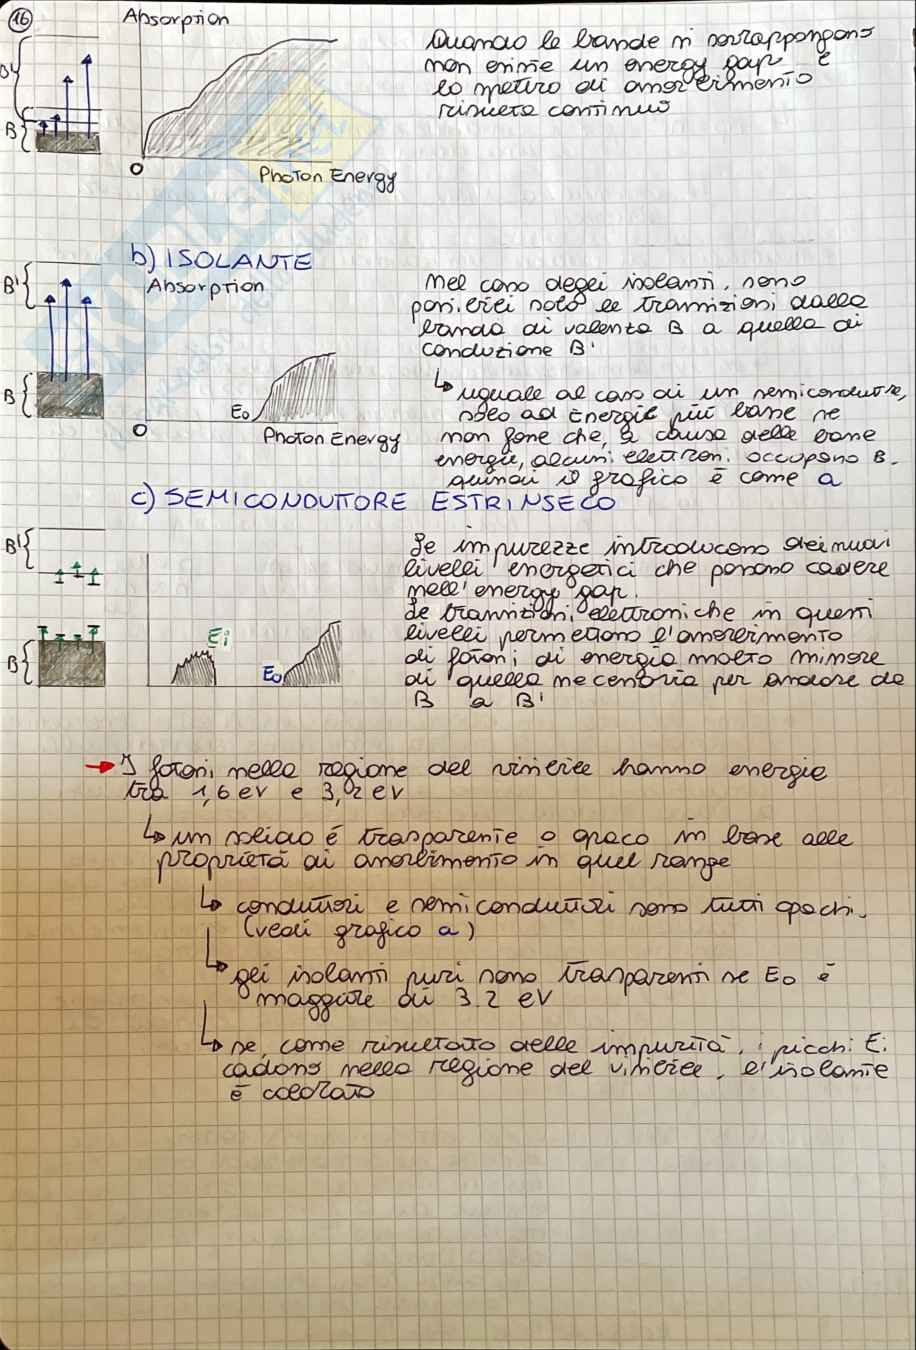 16
Absorption
B'
B
O
Photon Energy
Quando le bande si sovrappongono
non esiste un energy gap e
lo spettro di assorbimento
risulta continuo
b) ISOLANTE
B'
Absorption
B
E₀
O
Photon Energy
Nel caso degli isolanti, sono
possibili solo le transizioni dalla
banda di valenza B a quella di
conduzione B'
↳ uguale al caso di un semiconduttore,
solo ad Energie più basse se
non fosse che, a causa delle basse
energie, alcuni elettroni occupano B.
quindi il grafico è come a
c) SEMICONDUTTORE ESTRINSECO
B'
B
Ei
E₀
Le impurezze introducono dei nuovi
livelli energetici che possono cadere
nell'energy gap.
Le transizioni elettroniche in questi
livelli permettono l'assorbimento
di fotoni di energia molto minore
di quella necessaria per andare da
B a B'
→ I fotoni nella regione del visibile hanno energie
tra 1,6 eV e 3,2 eV
↳ un solido è trasparente o opaco in base alle
proprietà di assorbimento in quel range
↳ conduttori e semiconduttori sono tutti opachi.
(vedi grafico a)
↳ gli isolanti puri sono trasparenti se E₀ è
maggiore di 3.2 eV
↳ se, come risultato delle impurità, i picchi Ei
cadono nella regione del visibile, l'isolante
è colorato